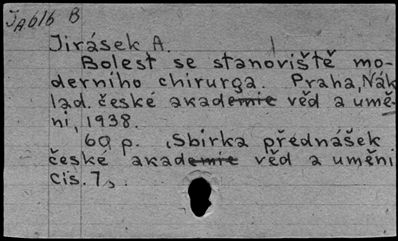 JA616 B
Jirásek A.
Bolest se stanoviště mo-
derního chirurga. Praha, Nák
lad. české akademie věd a umě-
ni, 1938.
60 p. (Sbírka přednášek
české akademie věd a uměni
Cis. 7).